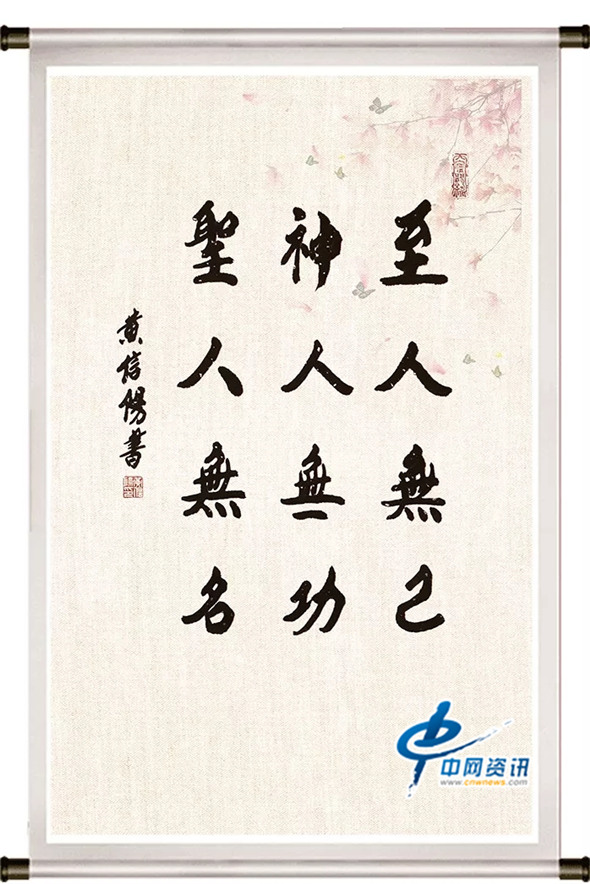 至人無己
神人無功
聖人無名
黄信陽書
中网资讯
www.cnwnews.com